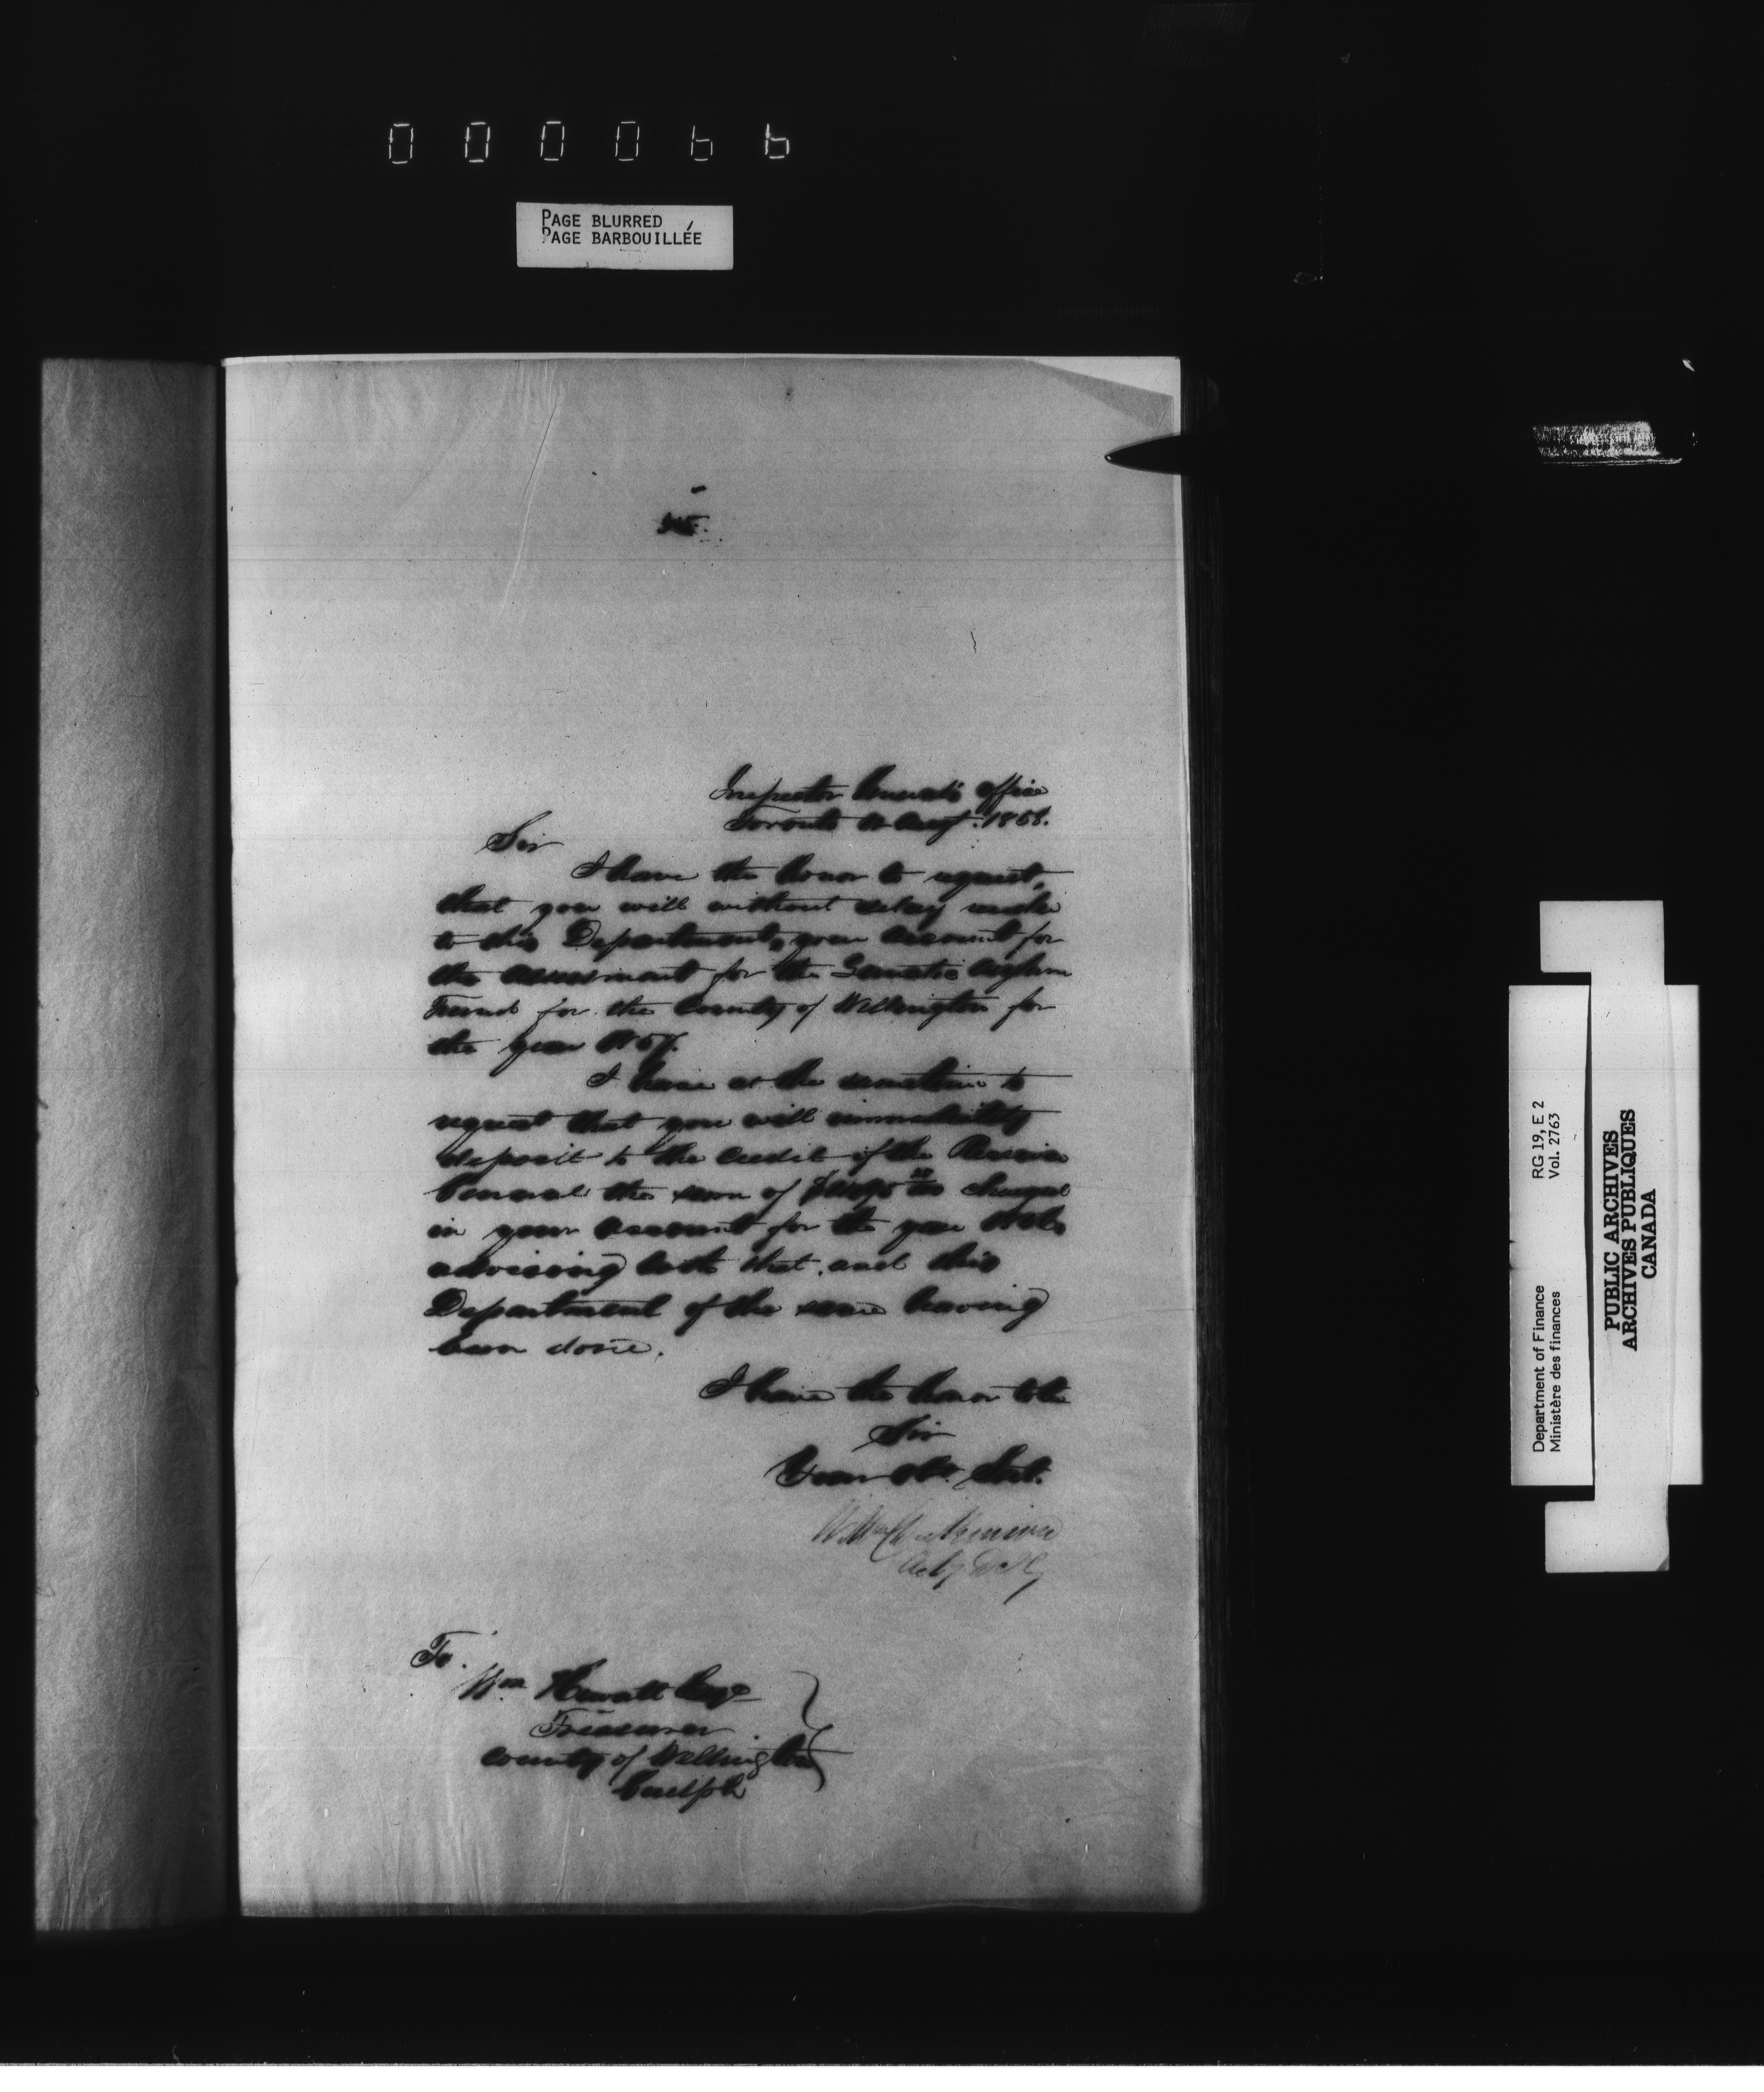 000066
PAGE BLURRED
PAGE BARBOUILLÉE
Inspector General's Office
Toronto Augt. 1858.
Sir
I have the honor to request,
that you will without delay render
to this Department, your account for
the assessment for the Lunatic Asylum
Fund for the County of Wellington for
the year 1857.
I have at the sametime to
request that you will immediately
deposit to the credit of the Receiver
General the sum of charged
in your account for the year
advising both that, and this
Department of the same having
been done.
I have the honor to be
Sir
Your Obt. Servt.
To.
Wm Hewatt Esqr
Treasurer
County of Wellington
Guelph
Department of Finance RG 19, E 2
Ministère des finances Vol. 2763
PUBLIC ARCHIVES
ARCHIVES PUBLIQUES
CANADA